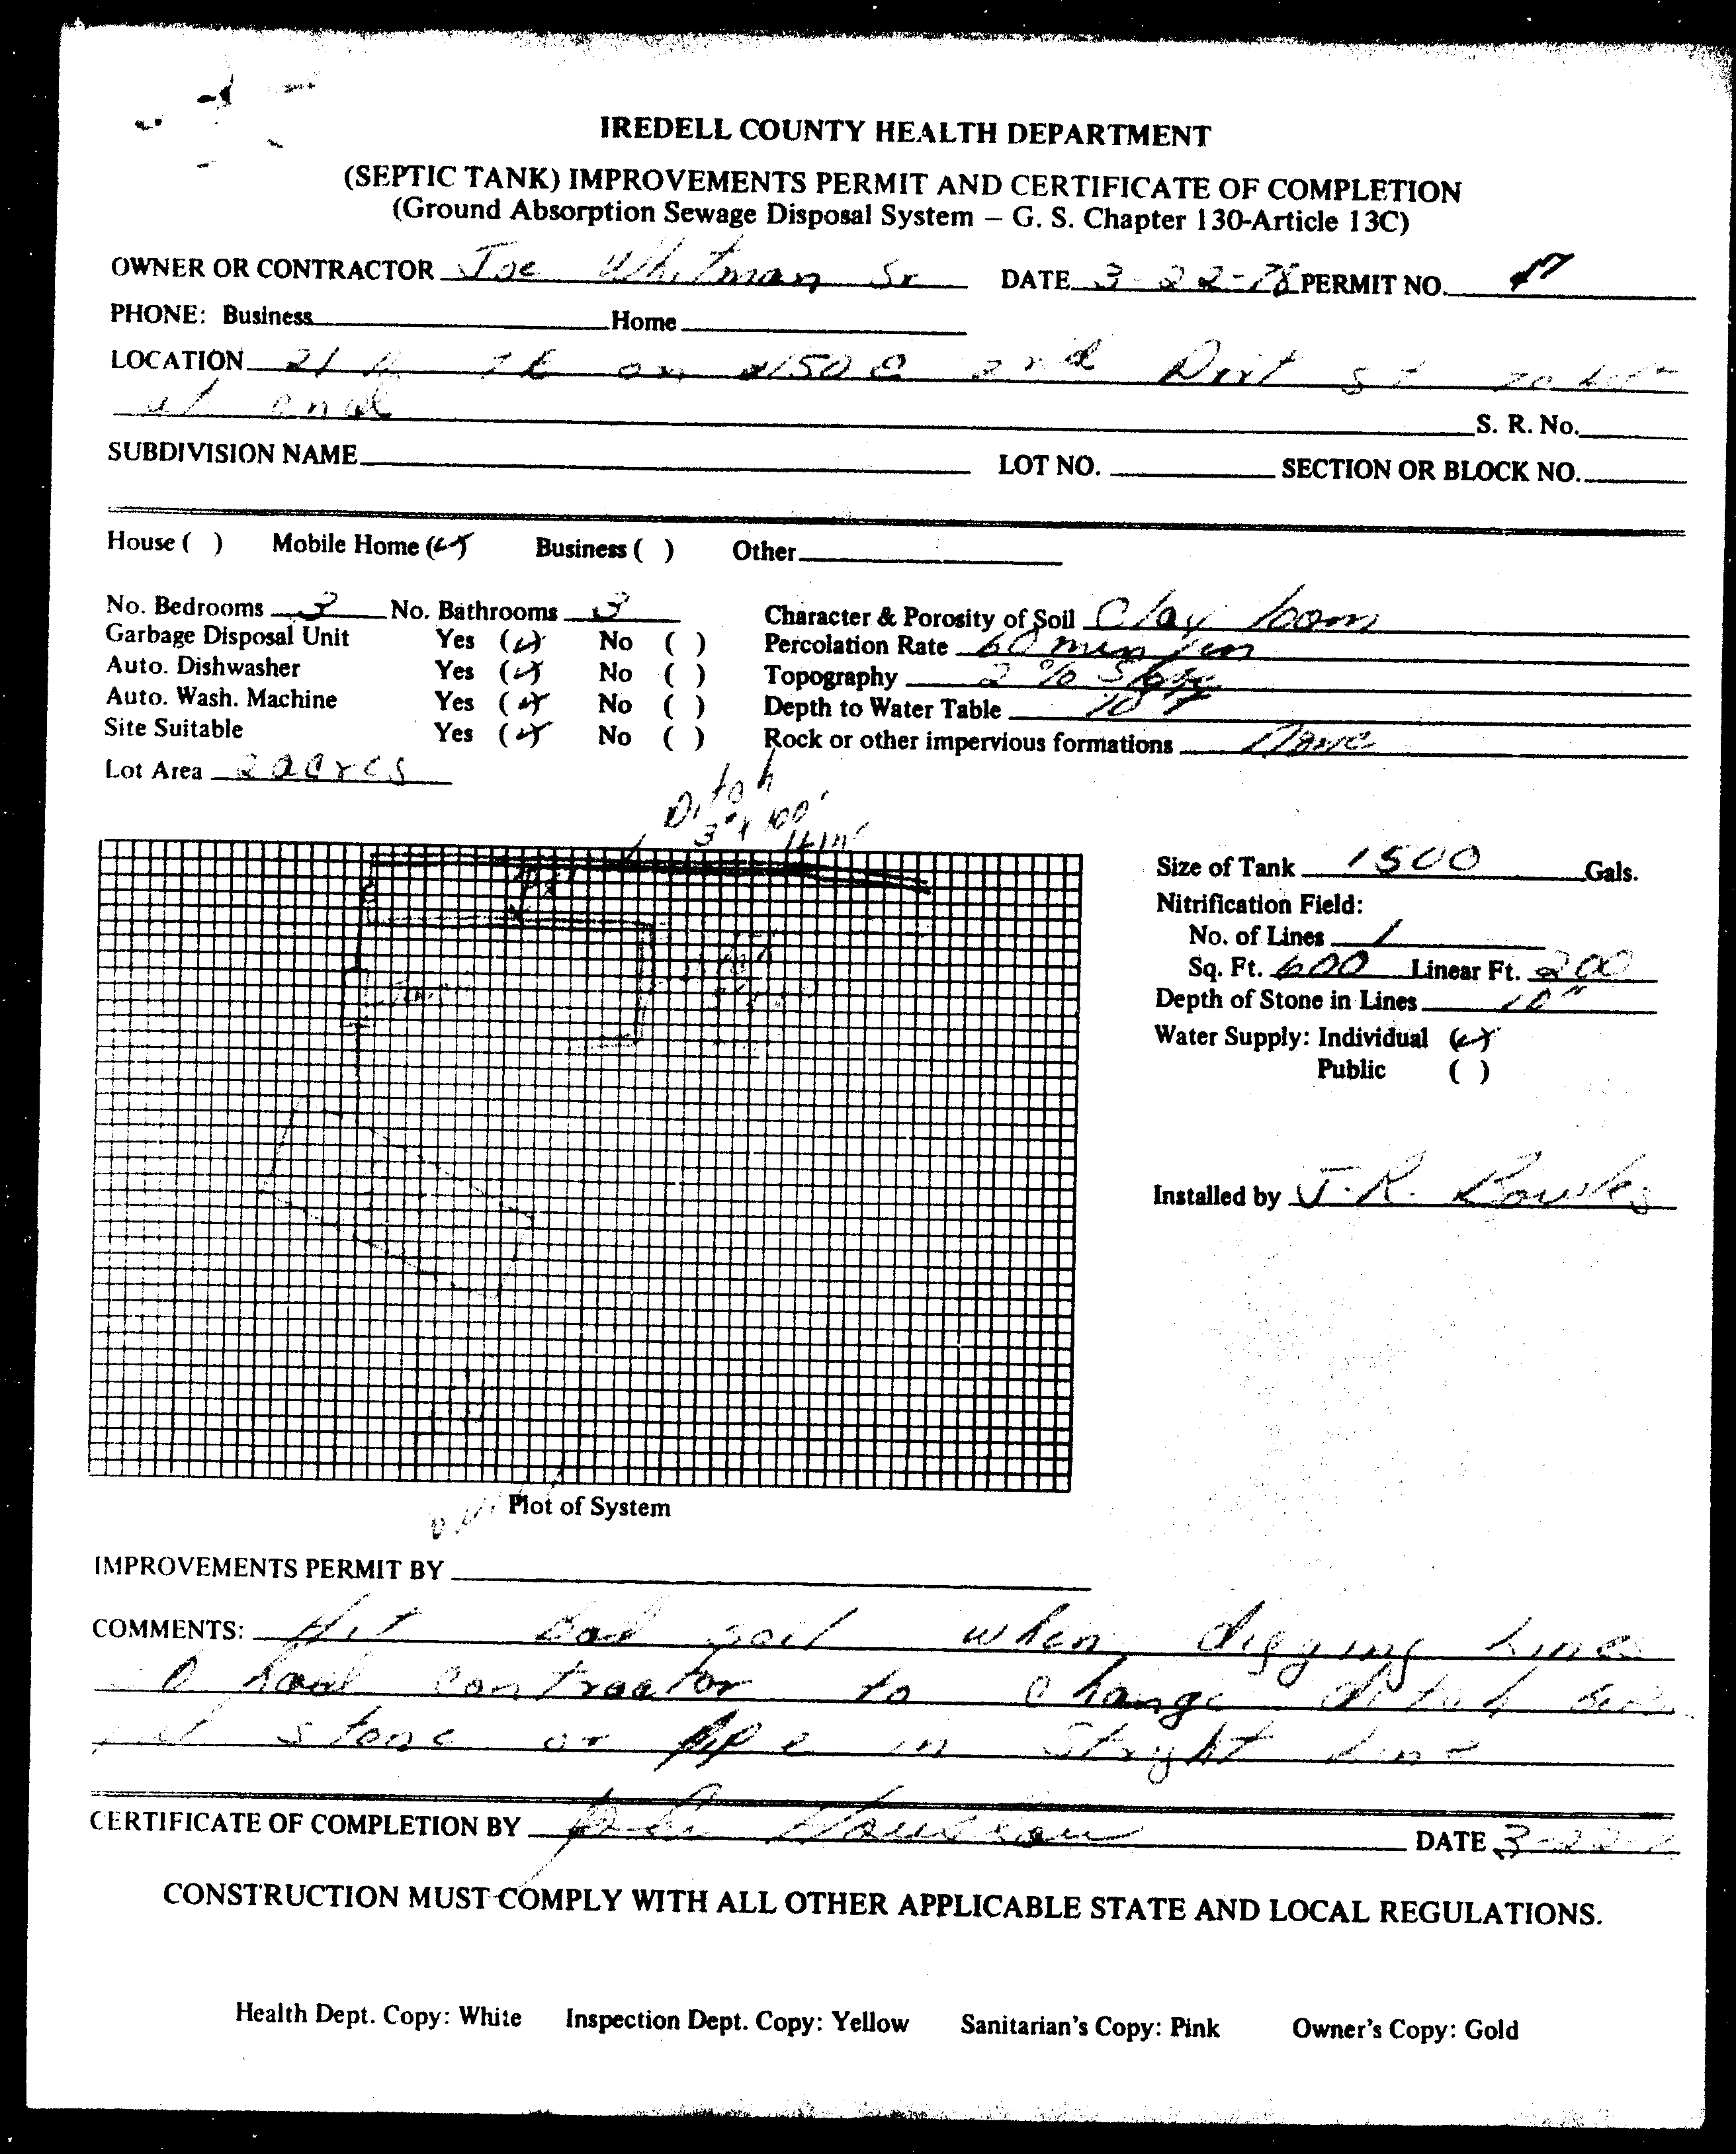 IREDELL COUNTY HEALTH DEPARTMENT
(SEPTIC TANK) IMPROVEMENTS PERMIT AND CERTIFICATE OF COMPLETION
(Ground Absorption Sewage Disposal System – G. S. Chapter 130-Article 13C)
OWNER OR CONTRACTOR Joe Whitman Sr DATE 3-22-78 PERMIT NO.
PHONE: Business Home
LOCATION 21 on 150 2nd Dirt St
at end
S. R. No.
SUBDIVISION NAME LOT NO. SECTION OR BLOCK NO.
House ( ) Mobile Home (✓) Business ( ) Other
No. Bedrooms 3 No. Bathrooms 3 Character & Porosity of Soil Clay loam
Garbage Disposal Unit Yes (✓) No ( ) Percolation Rate 60 min / in
Auto. Dishwasher Yes (✓) No ( ) Topography 2 % Slope
Auto. Wash. Machine Yes (✓) No ( ) Depth to Water Table 10
Site Suitable Yes (✓) No ( ) Rock or other impervious formations None
Lot Area 2 acres
Ditch
3' x 100'
Size of Tank 1500 Gals.
Nitrification Field:
No. of Lines 1
Sq. Ft. 600 Linear Ft. 200
Depth of Stone in Lines 10"
Water Supply: Individual (✓)
Public ( )
Installed by J. R.
Plot of System
IMPROVEMENTS PERMIT BY
COMMENTS: Hit bad soil when digging Line
had contractor to change ditch
stone or pipe in Stright Line
CERTIFICATE OF COMPLETION BY DATE 3-22
CONSTRUCTION MUST COMPLY WITH ALL OTHER APPLICABLE STATE AND LOCAL REGULATIONS.
Health Dept. Copy: White Inspection Dept. Copy: Yellow Sanitarian's Copy: Pink Owner's Copy: Gold